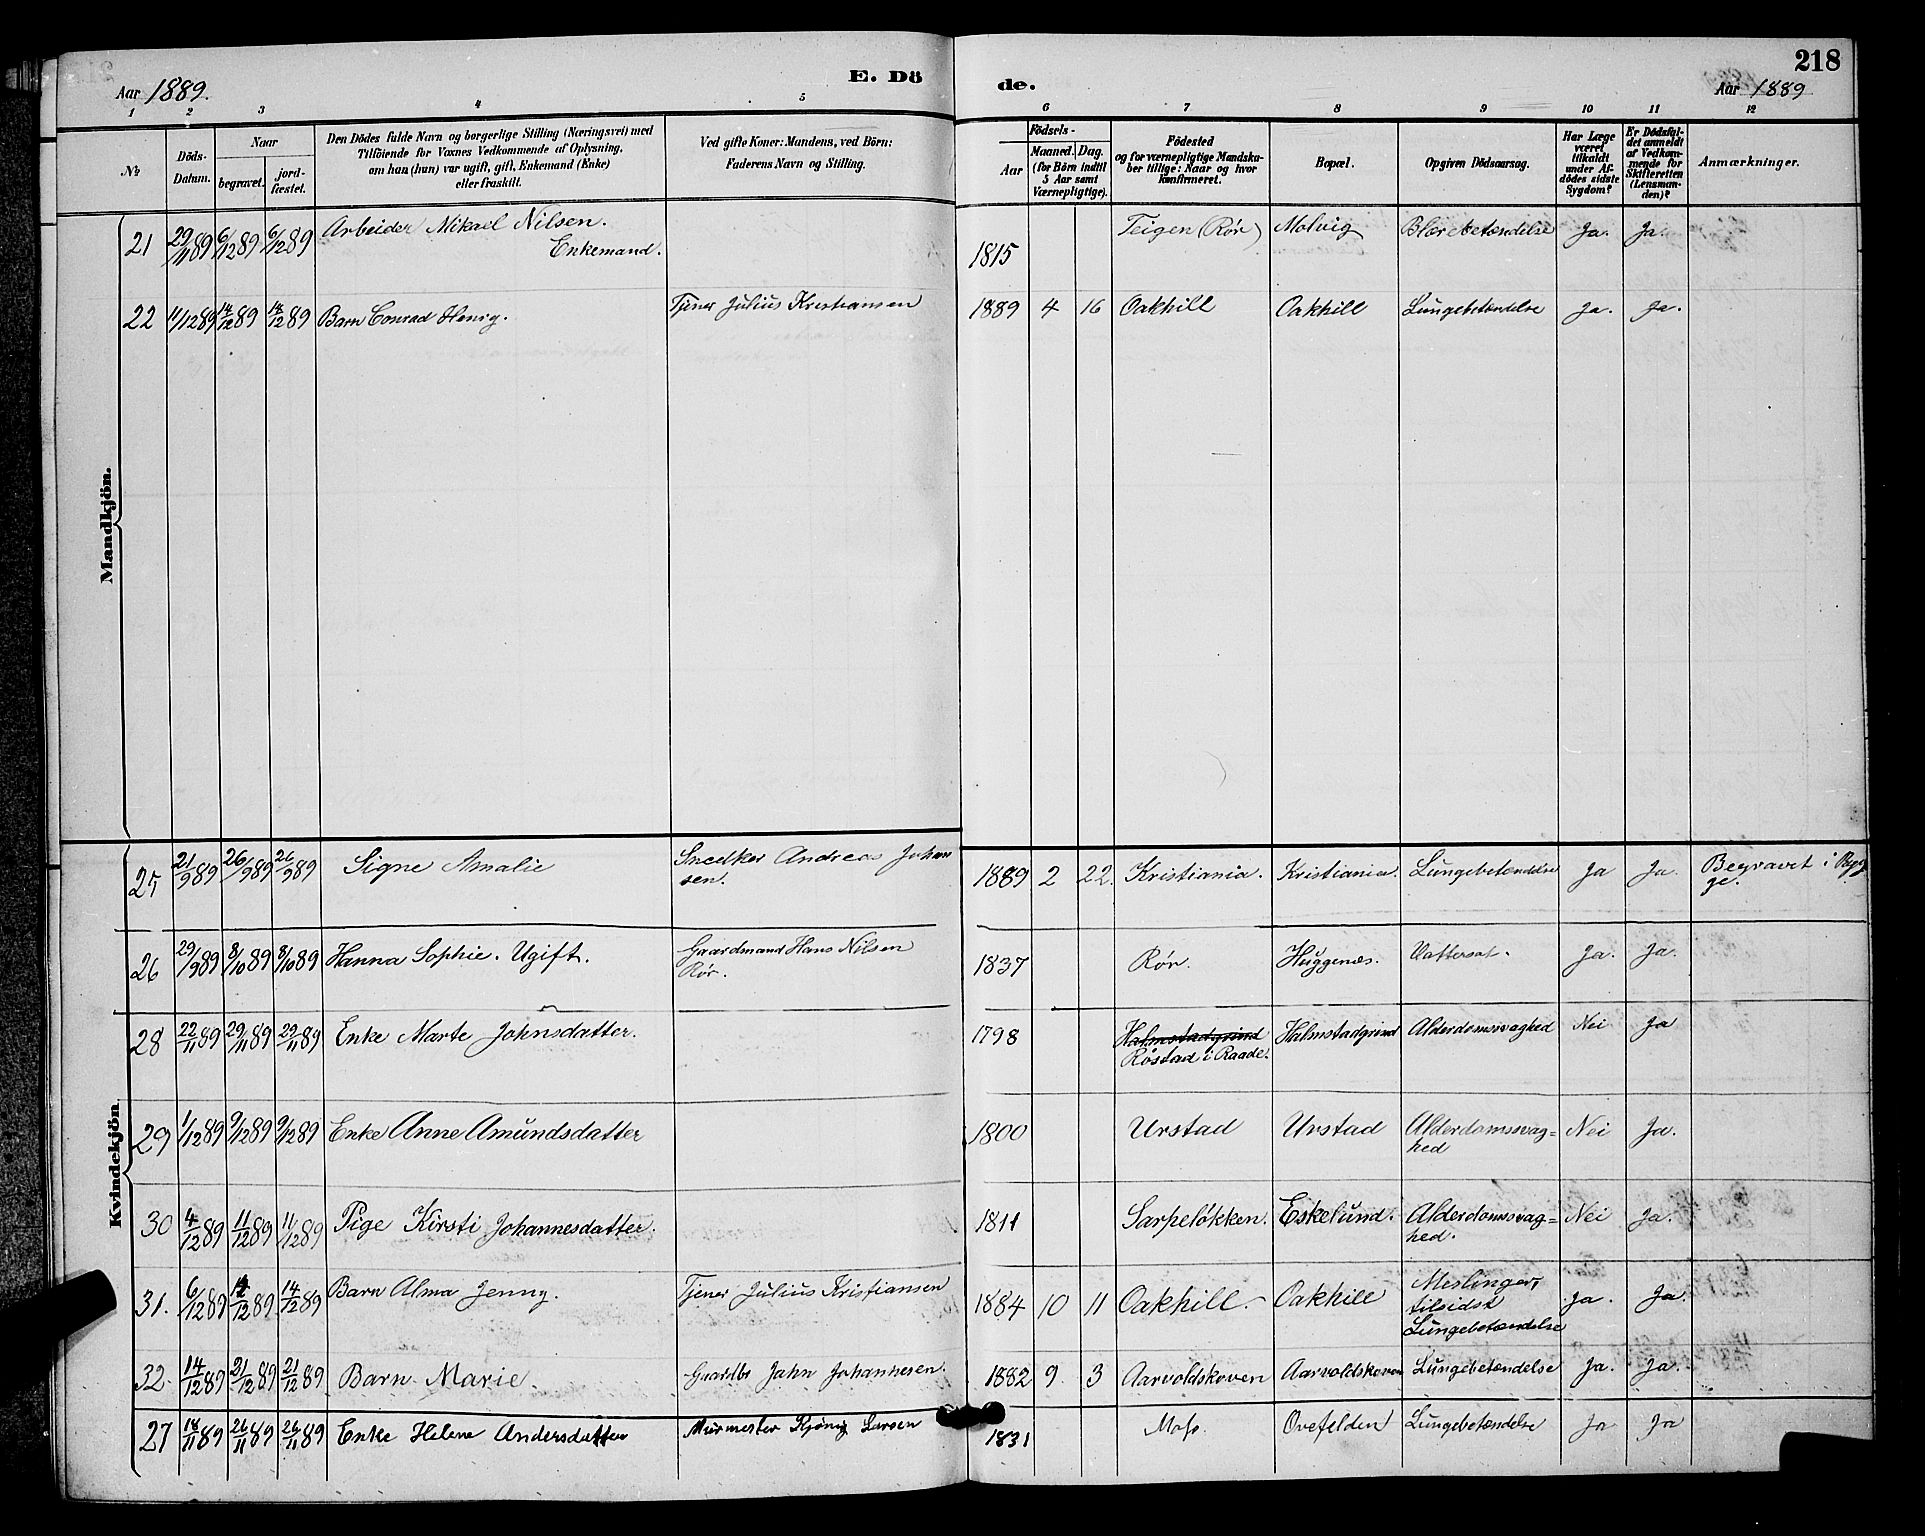 Aar 1889.
E. Dö
de.
218
Aar 1889
1 2 3 4 5 6 7 8 9 10 11 12
№
Döds-Datum.
Naar
begravet.
jordfæstet.
Den Dödes fulde Navn og borgerlige Stilling (Næringsvei) med
Tilföiende for Voxnes Vedkommende af Oplysning,
om han (hun) var ugift, gift, Enkemand (Enke)
eller fraskilt.
Ved gifte Koner: Mandens, ved Börn:
Faderens Navn og Stilling.
Födsels-
Aar
Maaned. Dag.
(for Börn indtil
5 Aar samt
Værnepligtige).
Födested
og for værnepligtige Mandska-
ber tillige: Naar og hvor
konfirmeret.
Bopæl.
Opgiven Dödsaarsag.
Har Læge
været
tilkaldt
under Af-
dödes sidste
Sygdom?
Er Dödsfal-
det anmeldt
af Vedkom-
mende for
Skifteretten
(Lensman-
den)?
Anmærkninger.
Mandkjön.
21 29/11 89 6/12 89 6/12 89 Arbeider Mikael Nilsen.
Enkemand. 1815 Teigen (Rör) Molvig Blærebetændelse Ja. Ja.
22 11/12 89 14/12 89 14/12 89 Barn Conrad Henry. Tjener Julius Kristiansen 1889 4 16 Oakhill Oakhill Lungebetændelse Ja. Ja.
Kvindekjön
25 21/9 89 26/9 89 26/9 89 Signe Amalie Snedker Andreas Johan
sen. 1889 2 22. Kristiania. Kristiania. Lungebetændelse Ja Ja. Begravet i Ryg
ge.
26 29/9 89 8/10 89 8/10 89 Hanna Sophie. Ugift. Gaardmand Hans Nilsen
Rör. 1837 Rör. Huggenæs. Vattersot. Ja. Ja.
28 22/11 89 29/11 89 29/11 89 Enke Marte Johnsdatter. 1798 Halmstadgrind
Röstad i Raade. Halmstadgrind Alderdomssvaghed Nei Ja
29 1/12 89 9/12 89 9/12 89 Enke Anne Amundsdatter 1800 Urstad Urstad Alderdomssvag=
hed Nei Ja.
30 4/12 89 11/12 89 11/12 89 Pige Kirsti Johannesdatter. 1811 Sarpelökken. Eskelund. Alderdomssvag=
hed. Nei Ja.
31. 6/12 89 14/12 89 14/12 89 Barn Alma Jenny. Tjener Julius Kristiansen 1884 10 11 Oakhill. Oakhill Meslinger,
tilsidst
Lungebetændelse Ja. Ja.
32. 14/12 89 21/12 89 21/12 89 Barn Marie. Gaardbr John Johannesen. 1882 9 3 Aarvoldskoven Aarvoldskoven Lungebetændelse Ja. Ja.
27 18/11 89 26/11 89 26/11 89 Enke Helene Andersdatter Murmester Larsen 1831 Moss. Ovefelden Lungebetændelse Ja Ja